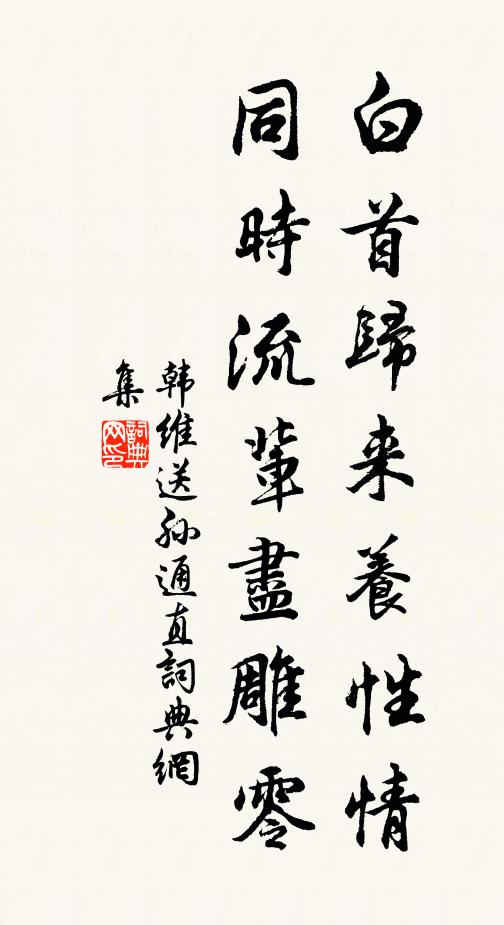 白首歸来養性情
同時流輩盡雕零
韩維送孙通直詞典網
集
詞典
网印